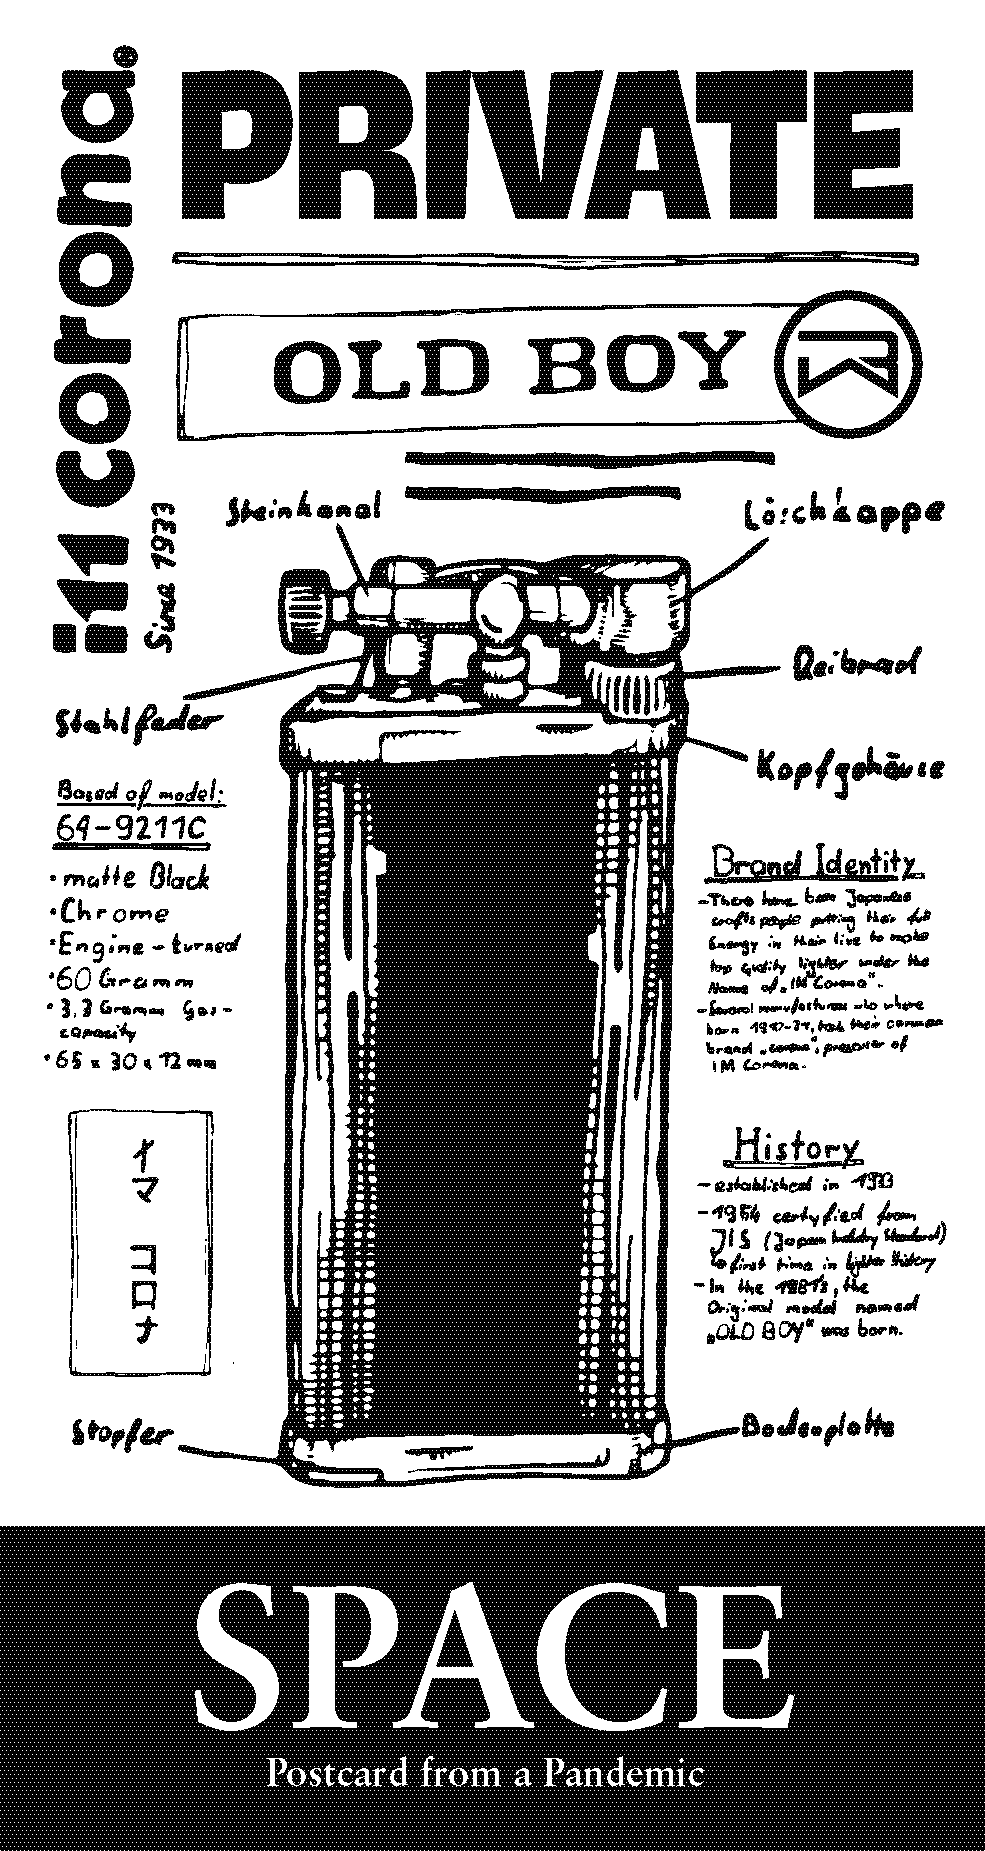 PRIVATE
corona®
Since 1933
OLD BOY
Steinkanal
Löschkappe
Reibrad
Stahlfeder
Kopfgehäuse
Based of model:
64-9211C
• matte Black
• Chrome
• Engine-turned
• 60 Gramm
• 3,3 Gramm Gas-
capacity
• 65 x 30 x 12 mm
イマ コロナ
Brand Identity
- There have been Japanese
craftspeople putting their full
Energy in their live to make
top quality lighter under the
Name of „IM Corona".
- Several manufactures who where
born 1910-31, had their common
brand „corona", precursor of
IM Corona.
History
- established in 1933
- 1954 certyfied from
JIS (Japan Industry Standard)
↳ first time in lighter history
- In the 1981's, the
Original model named
„OLD BOY" was born.
Stopfer
Bodenplatte
SPACE
Postcard from a Pandemic